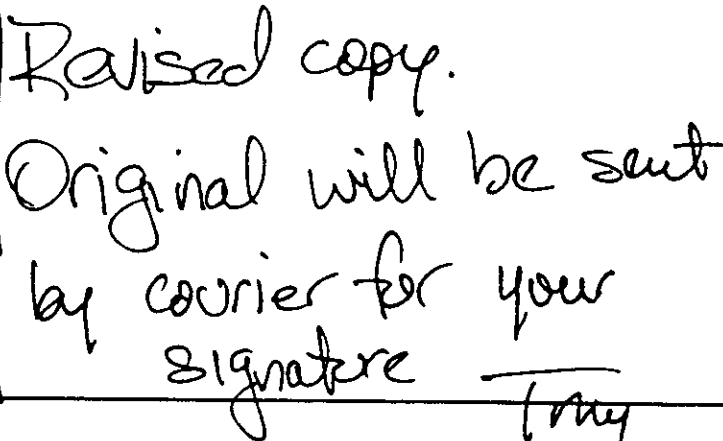 Revised copy.
Original will be sent
by courier for your
signature